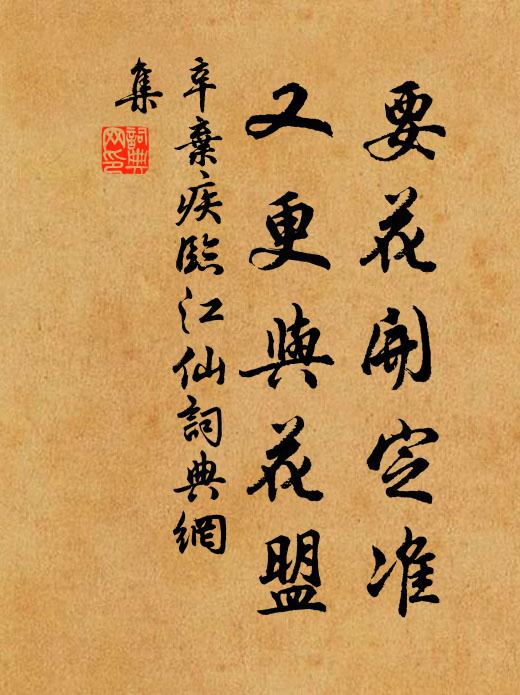 要花開定准
又更與花盟
辛棄疾臨江仙詞典網
集
詞典網印